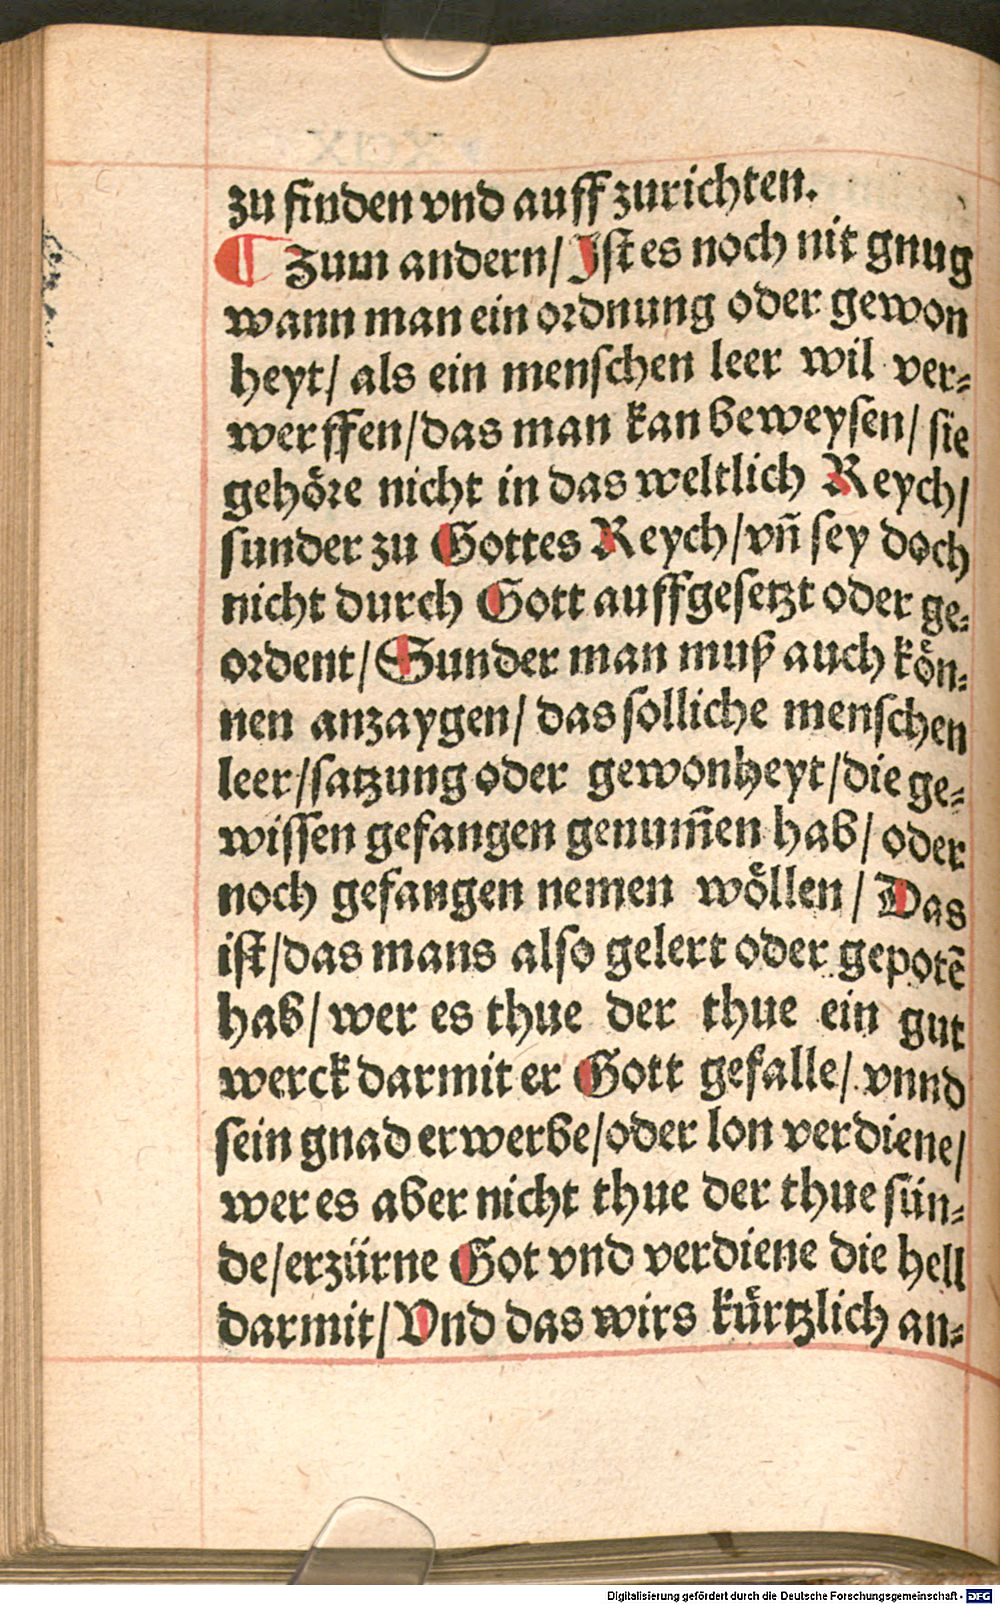 zu finden vnd auff zurichten.
¶ Zum andern/ Jst es noch nit gnug
wann man ein ordnung oder gewon
heyt/ als ein menschen leer wil ver⸗
werffen/das man kan beweysen/ sie
gehöre nicht in das weltlich Reych/
sunder zu Gottes Reych/vñ sey doch
nicht durch Gott auffgesetzt oder ge⸗
ordent/Sunder man muß auch kön⸗
nen anzaygen/ das solliche menschen
leer/satzung oder gewonheyt/die ge⸗
wissen gefangen genum̃en hab/ oder
noch gefangen nemen wöllen/ Das
ist/das mans also gelert oder gepotẽ
hab/ wer es thue der thue ein gut
werck darmit er Gott gefalle/ vnnd
sein gnad erwerbe/oder lon verdiene/
wer es aber nicht thue der thue sün⸗
de/erzürne Got vnd verdiene die hell
darmit/Vnd das wirs kürtzlich an⸗
Digitalisierung gefördert durch die Deutsche Forschungsgemeinschaft - DFG